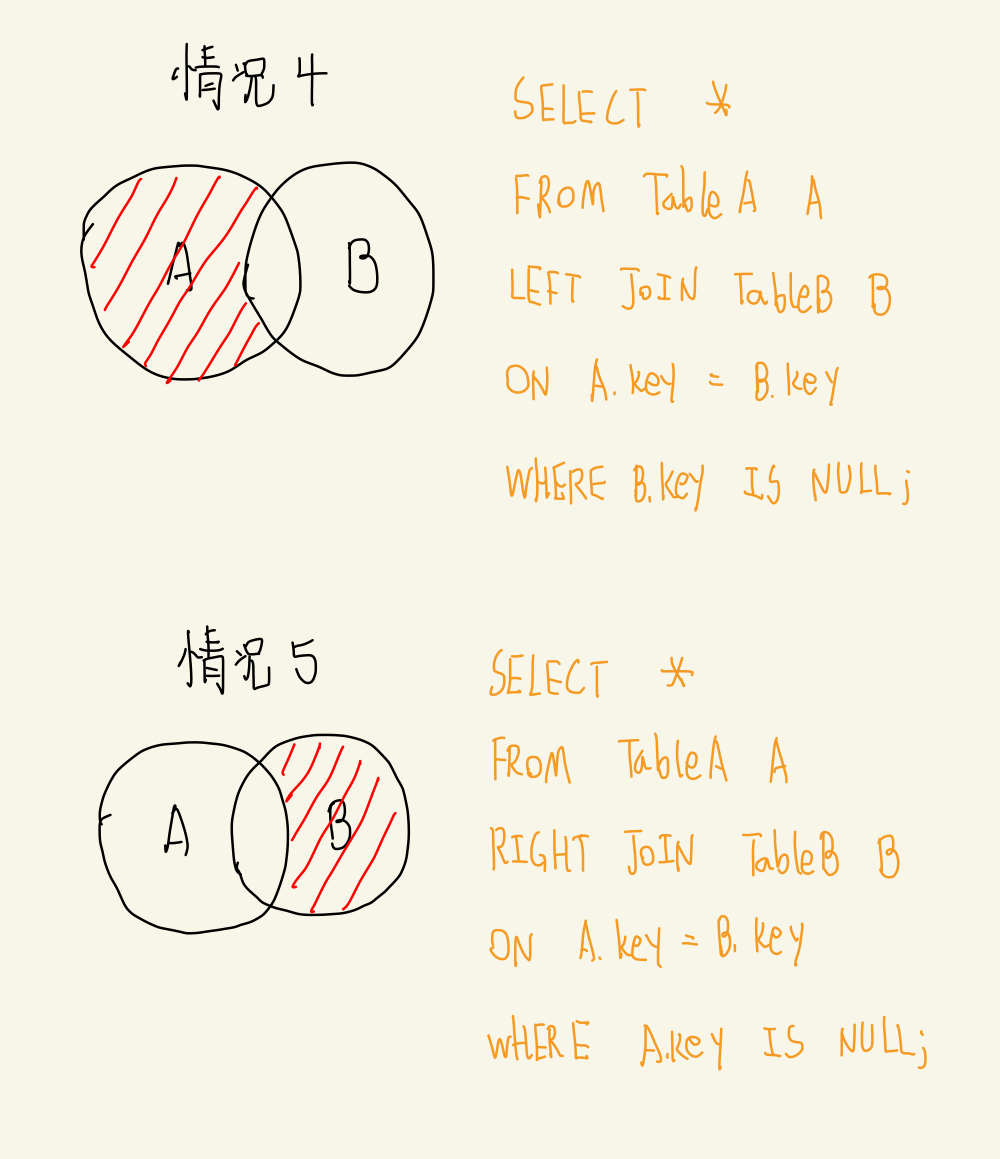 情况4
A
B
SELECT *
FROM TableA A
LEFT JOIN TableB B
ON A.key = B.key
WHERE B.key IS NULL;
情况5
A
B
SELECT *
FROM TableA A
RIGHT JOIN TableB B
ON A.key = B.key
WHERE A.key IS NULL;